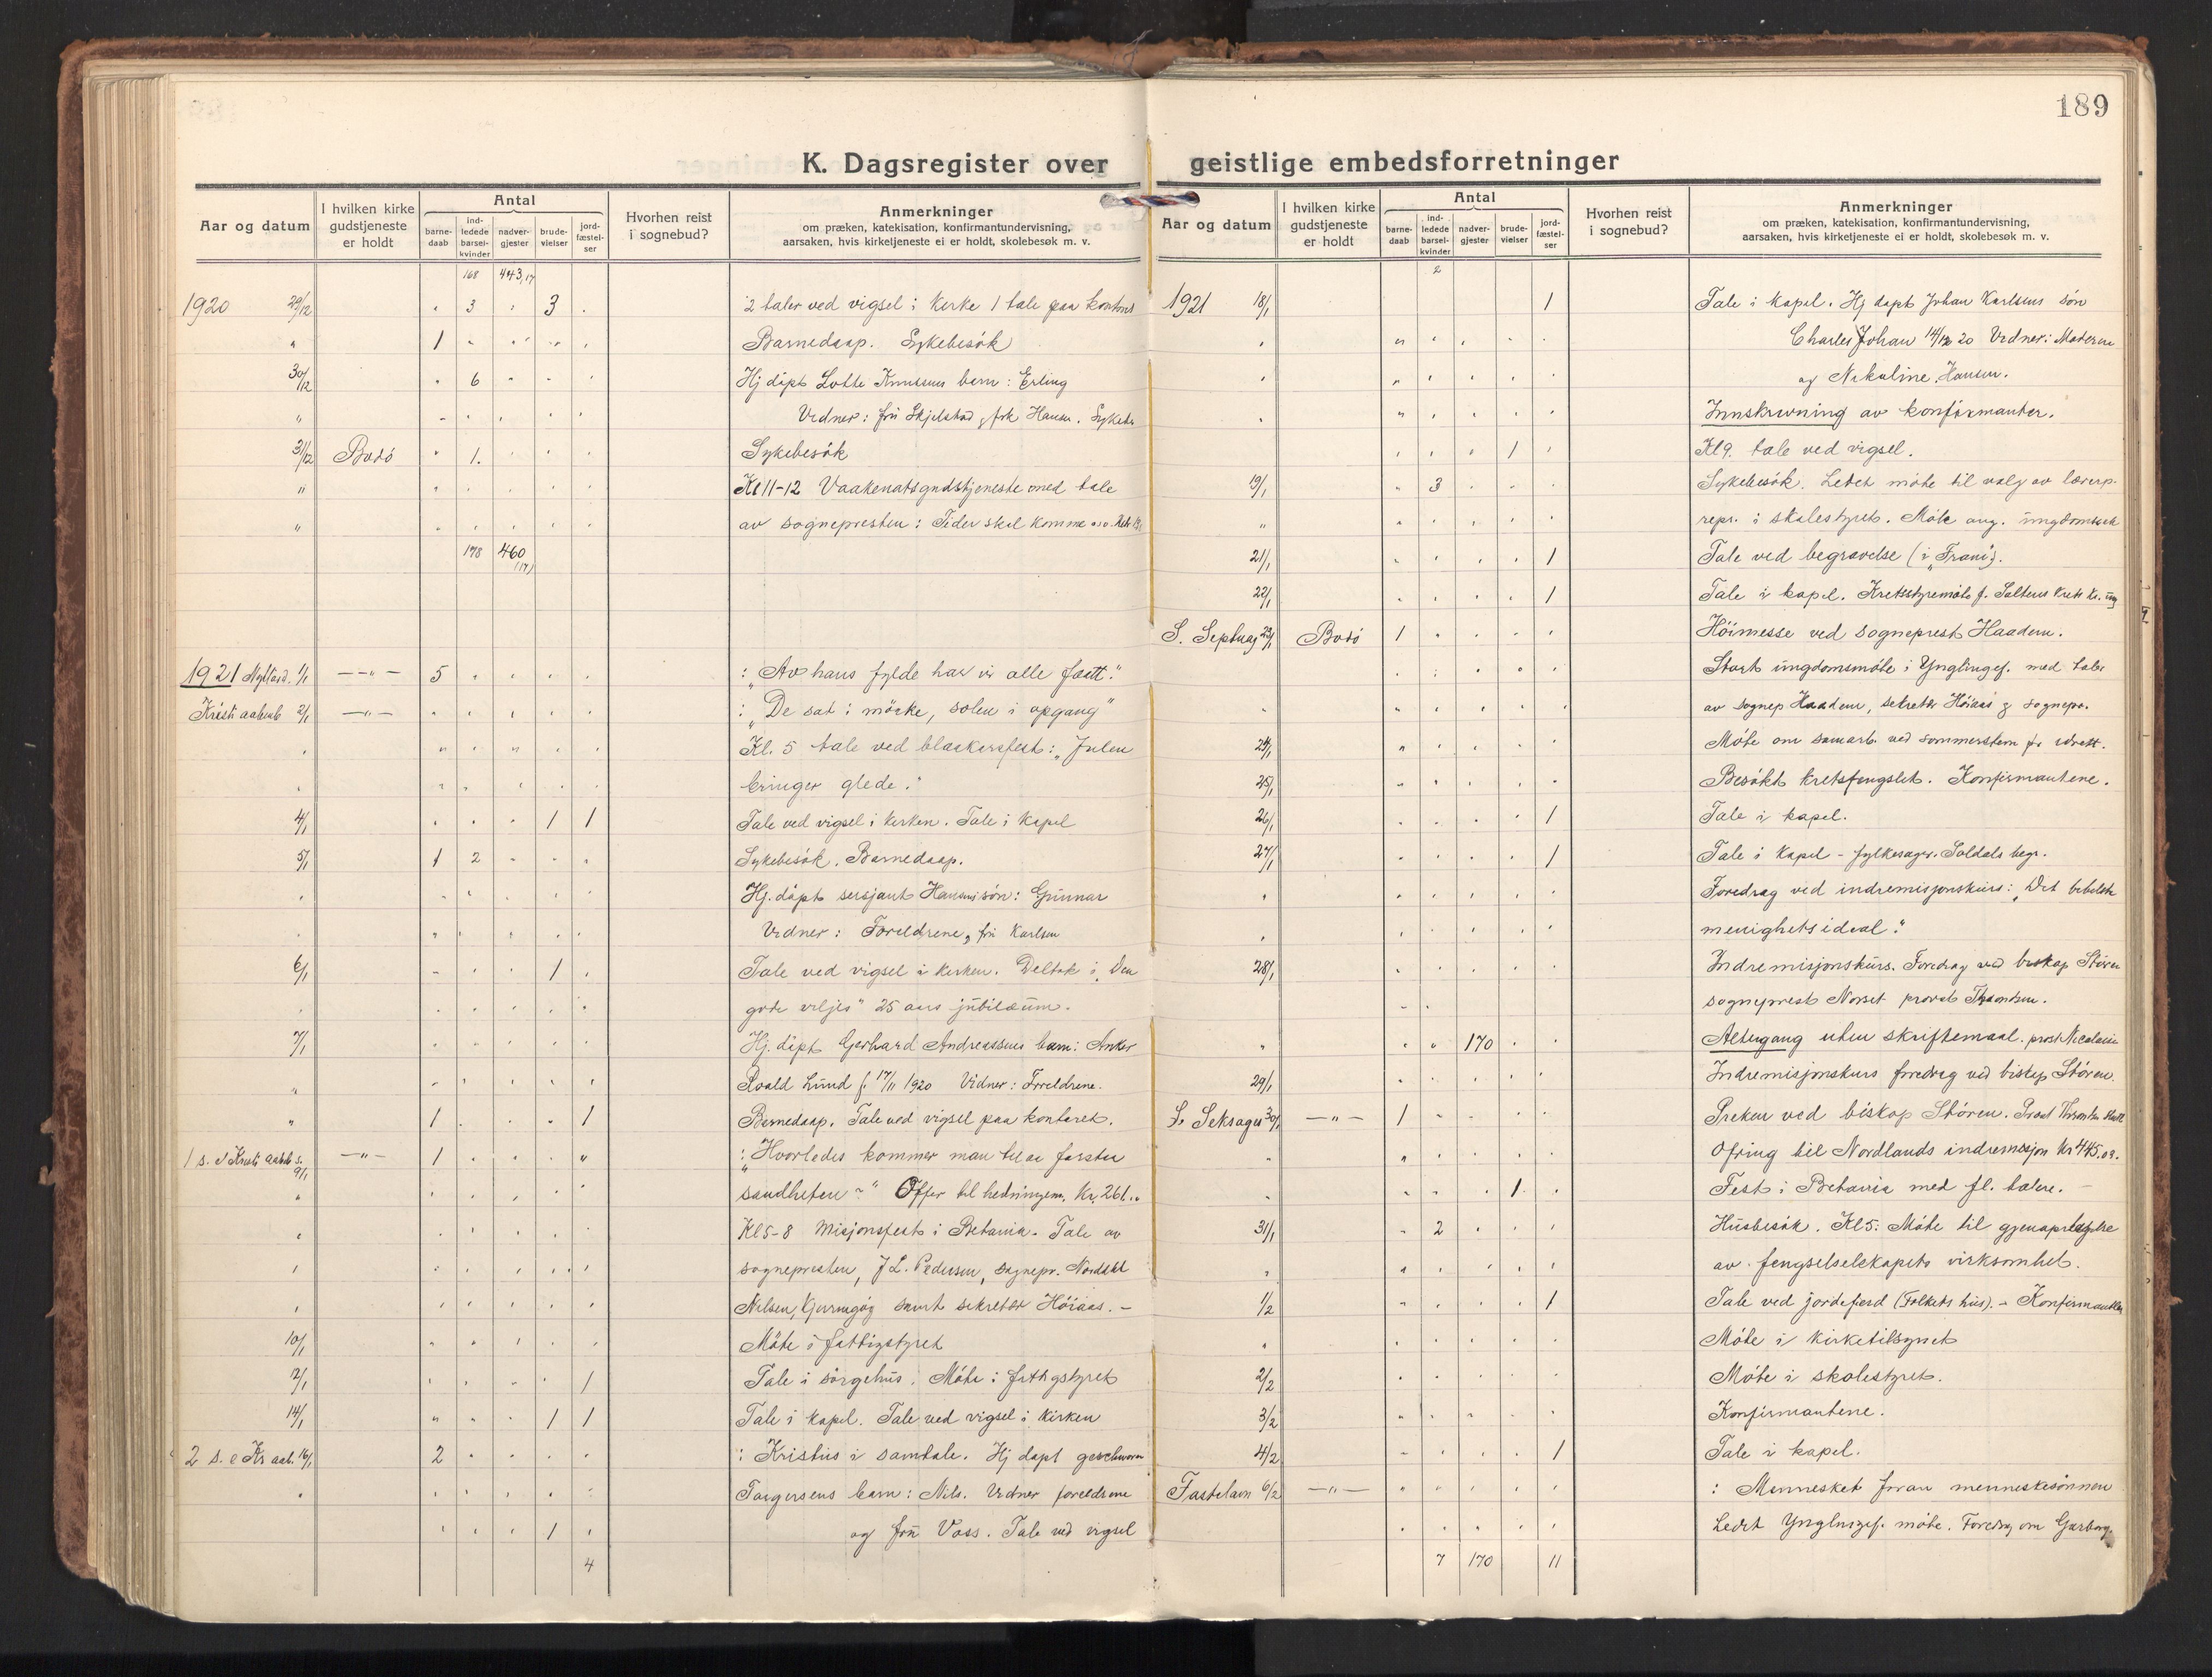 189
K. Dagsregister over geistlige embedsforretninger
Aar og datum
I hvilken kirke gudstjeneste er holdt
Antal
barne-daab
ind-ledede barsel-kvinder
nadver-gjester
brude-vielser
jord-fæstel-ser
Hvorhen reist i sognebud?
Anmerkninger
om præken, katekisation, konfirmantundervisning,
aarsaken, hvis kirketjeneste ei er holdt, skolebesøk m. v.
168 443,17
1920 29/12 " 3 " 3 " 2 taler ved vigsel i kirke 1 tale paa kontoret
" 1 " " " " Barnedaap. Sykebesök
30/12 " 6 " " " Hj döpt Lotte Knutsens barn: Erling
" Vidner: fru Skjelstad g frk Hansen.
31/12 Bodö " 1. " " " Sykebesök
" Kl 11-12 Vaakenatsgudstjeneste med tale
" av sognepresten: Tider skal komme
178 460 (17)
1921 Nyttaarsd. 1/1 — " — 5 " " " " : "Av hans fylde har vi alle faatt."
Kristi aabenb 2/1 — " — : "De sat i mörke, solen i opgang"
" Kl. 5 tale ved blaakorsfest: "Julen
" bringer glede."
4/1 " " " 1 1 Tale ved vigsel i kirken. Tale i kapel
5/1 1 2 " " " Sykebesök. Barnedaap.
" Hj. döpt sersjant Hansens sön: Gunnar
" Vidner: Foreldrene, fru Karlsen
6/1 " " " 1 " Tale ved vigsel i kirken. Deltok i "Den
" gode viljes" 25 aars jubilæum.
7/1 Hj. döpt Gerhard Andreassens barn: Anker
" Roald Lund f. 17/11 1920 Vidner: Foreldrene.
" 1 " " " 1 Barnedaap. Tale ved vigsel paa kontoret.
1 s. e Kristi aabb s. 9/1 — " — 1 " " " " : "Hvorledes kommer man til at forstaa
" sandheten" Offer til hedningem. Kr. 261..
" Kl 5-8 Misjonsfest i Betania. Tale av
" sognepresten, J L. Pedersen, sognepr.
" Nilsen, Kjerringöy samt sekretær Höiaas. -
10/1 Möte i fattigstyret
1 Tale i sörgehus. Möte i fattigstyret
14/1 " " " 1 1 Tale i kapel. Tale ved vigsel i kirken
2 s. e Kr aab. 16/1 2 " " " " : Kristus i samtale. Hj döpt
" barn: Nils. Vidner foreldrene
1 " og fru Voss. Tale ved vigsel
4
Aar og datum
I hvilken kirke gudstjeneste er holdt
Antal
barne-daab
ind-ledede barsel-kvinder
nadver-gjester
brude-vielser
jord-fæstel-ser
Hvorhen reist i sognebud?
Anmerkninger
om præken, katekisation, konfirmantundervisning,
aarsaken, hvis kirketjeneste ei er holdt, skolebesøk m. v.
2
1921 18/1 1 Tale i kapel. Hj döpt Johan Karlsens sön
" Charles Johan 14/12 20 Vidner: Moderen
" og Nikoline Hansen.
" Innskrivning av konfirmanter.
" " " 1 " Kl 9. tale ved vigsel.
19/1 " 3 " " " Sykebesök. Ledet möte til valg av lærerp.
" repr. i skolestyret. Möte ang. ungdomssek
21/1 " " " " 1 Tale ved begravelse (i "Fram").
22/1 " " " " 1 Tale i kapel. Kretsstyremöte f. Saltens krets Kr. ung
S. Septuag 23/1 Bodö 1 " " " " Höimesse ved sogneprest Haadem.
Stort ungdomsmöte i Ynglingef. med taler
" av sognep Haadem, sekretær Höiaas g sognepr.
24/1 Möte om samarb. ved sommerstevn for idrett.
25/1 Besökt kretsfengslet. Konfirmantene.
26/1 " " " " 1 Tale i kapel.
27/1 " " " " 1 Tale i kapel - Soldats begr.
" Foredrag ved indremisjonskurs: "Det bibelske
" menighetsideal."
28/1 Indremisjonskurs. Foredrag ved biskop Stören
sogneprest Norset
" " " 170 " " Altergang uten skriftemaal. prost Nicolaisen
29/1 Indremisjonskurs foredrag ved biskop Stören.
S. Seksages 30/1 — " — 1 " " " " Preken ved biskop Stören.
" Ofring til Nordlands indremisjon Kr 445.09.
" " " " 1 " Fest i Betania med fl. talere. -
31/1 " 2 " " " Husbesök. Kl 5: Möte til gjenoptagelse
" av fengselselskapets virksomhet.
1/2 " " " " 1 Tale ved jordeferd (Folkets hus). - Konfirmantene
" Möte i kirketilsynet
2/2 Möte i skolestyret.
3/2 Konfirmantene.
4/2 " " " " 1 Tale i kapel.
Fastelavn 6/2 — " — : Mennesket foran menneskesönnen
Ledet Ynglingef. möte. Foredrag om Garborg.
7 170 11